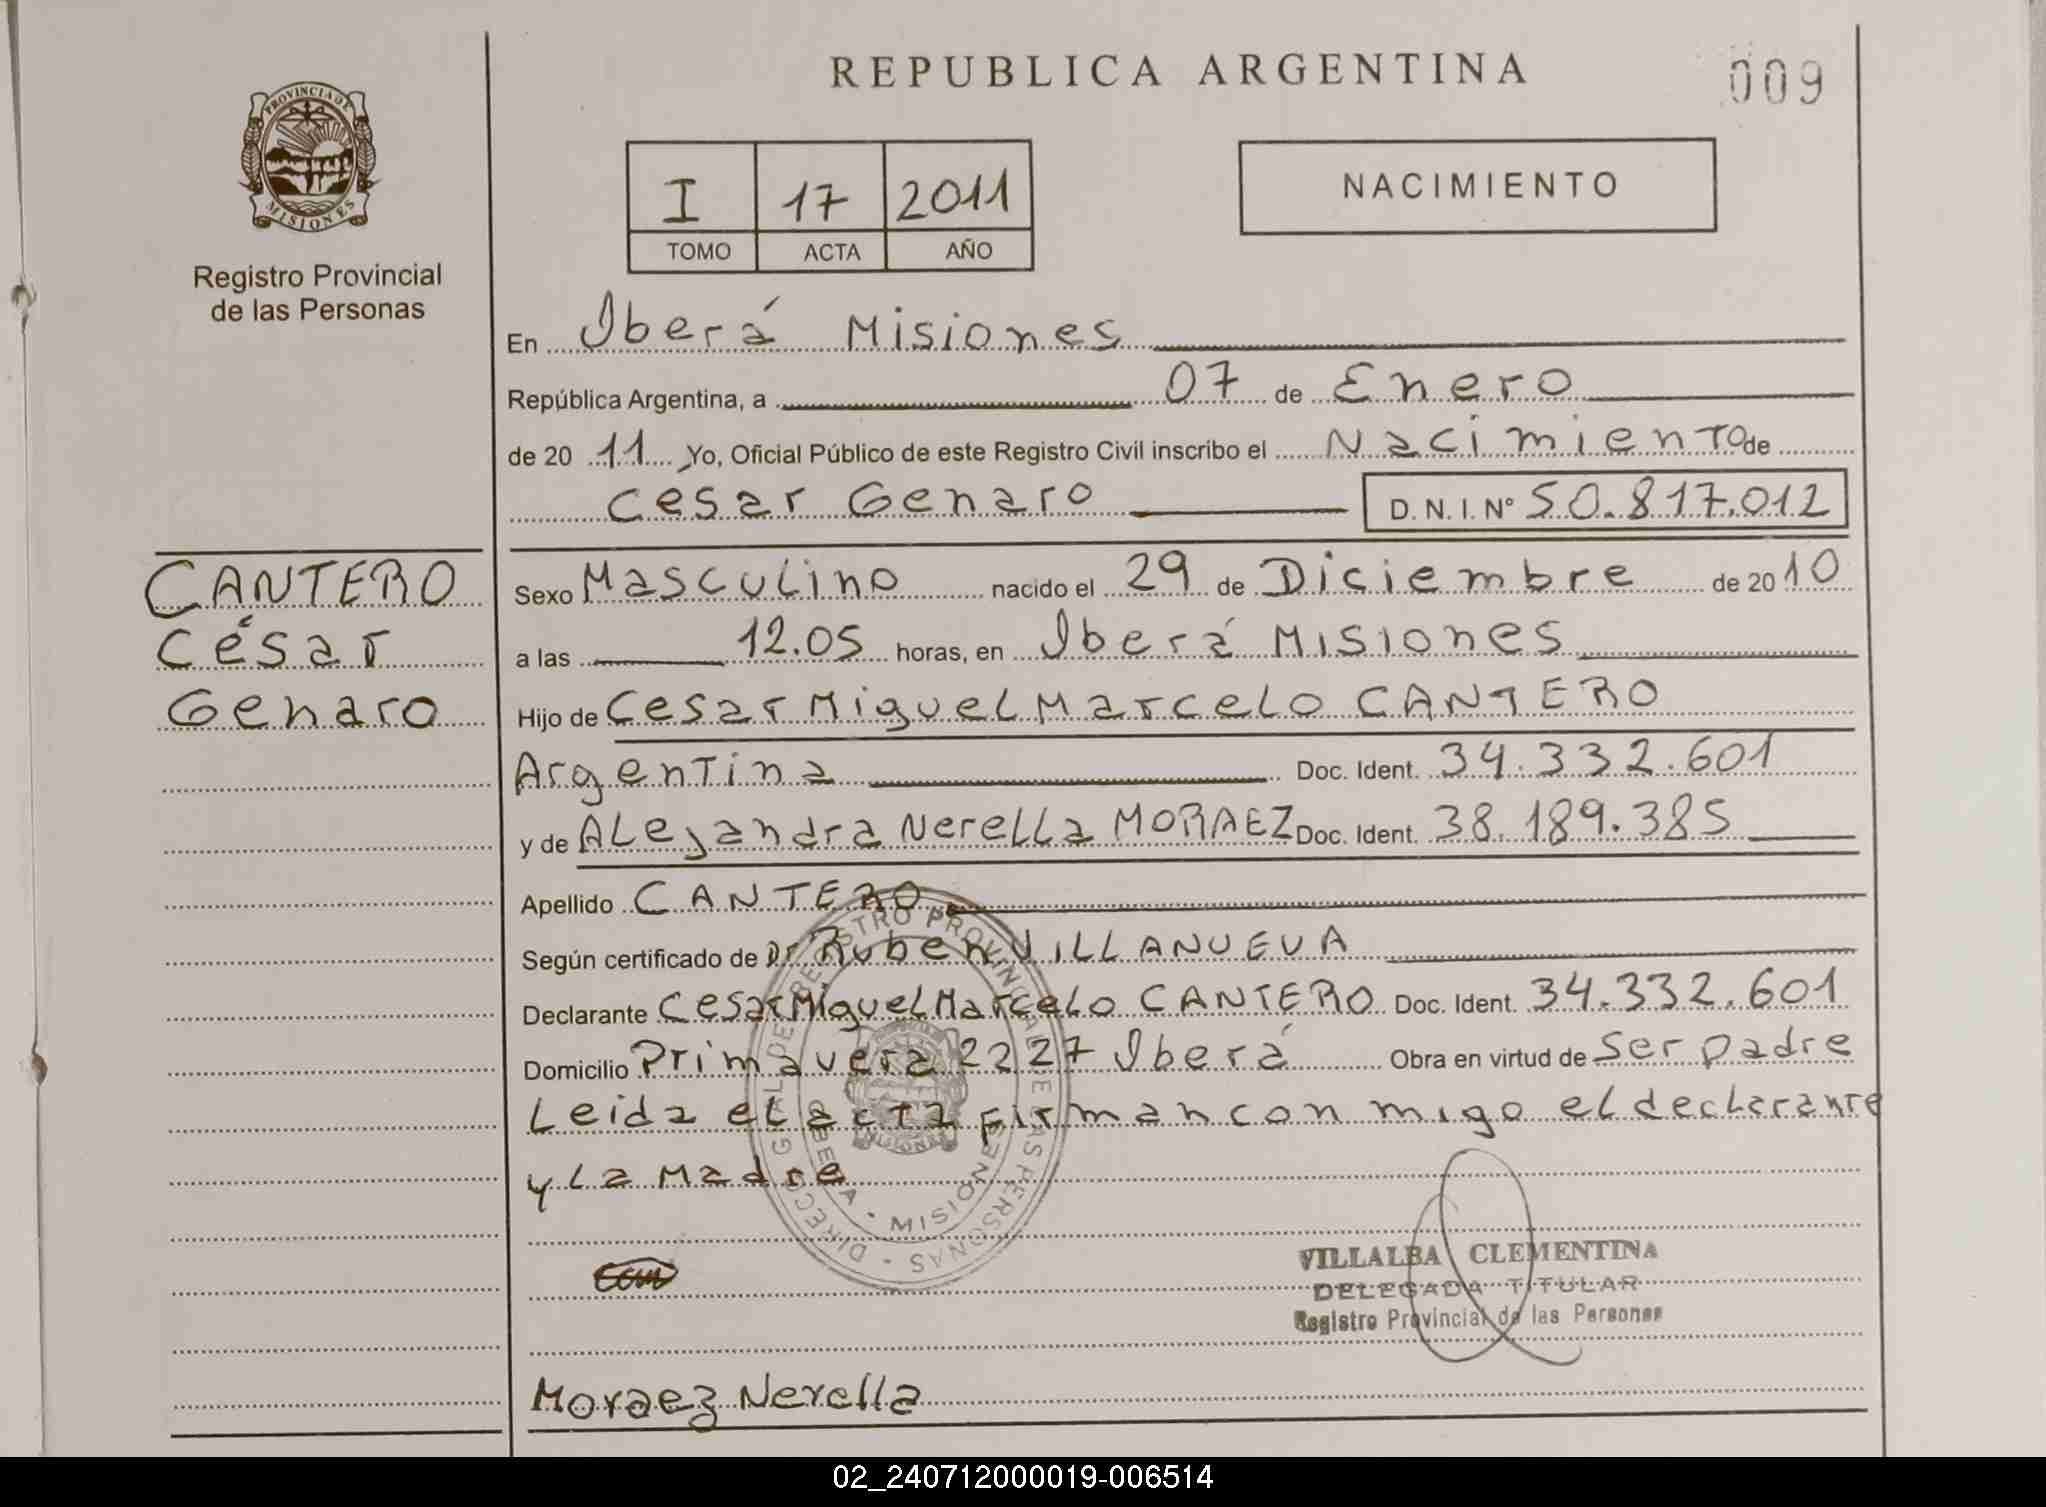 REPUBLICA ARGENTINA
009
PROVINCIA DE
MISIONES
Registro Provincial
de las Personas
I 17 2011
TOMO ACTA AÑO
NACIMIENTO
En Iberá Misiones
República Argentina, a 07 de Enero
de 20 11 Yo, Oficial Público de este Registro Civil inscribo el Nacimiento de
César Genaro D. N. I. Nº 50.817.012
CANTERO
César
Genaro
Sexo Masculino nacido el 29 de Diciembre de 20 10
a las 12.05 horas, en Iberá Misiones
Hijo de Cesar Miguel Marcelo CANTERO
Argentina Doc. Ident. 34.332.601
y de ALejandra Nerella MORAEZ Doc. Ident. 38.189.385
Apellido CANTERO
Según certificado de Dr Ruben VILLANUEVA
Declarante Cesar Miguel Marcelo CANTERO Doc. Ident. 34.332.601
Domicilio Primavera 2227 Iberá Obra en virtud de ser padre
Leida el acta firman con migo el declarante
y La Madre
REGISTRO PROVINCIAL DE LAS PERSONAS
MISIONES
VILLALBA CLEMENTINA
DELEGADA TITULAR
Registro Provincial de las Personas
Moraez Nerella
02_240712000019-006514